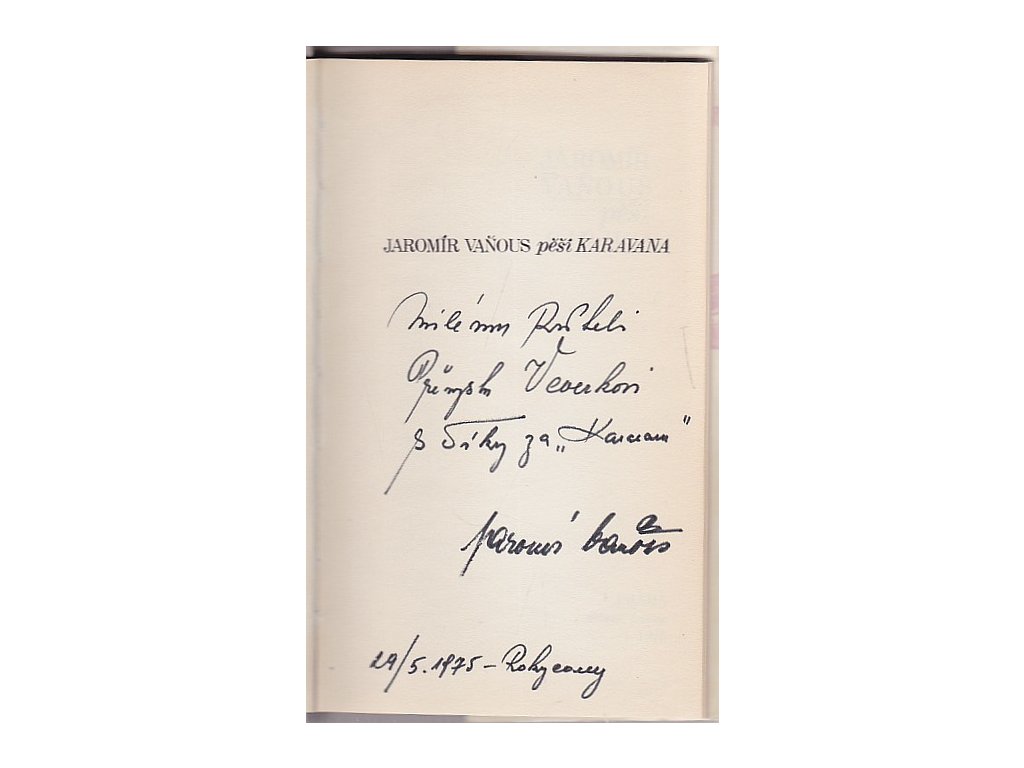 JAROMÍR VAŇOUS pěší KARAVANA
Milému Příteli
Přemyslu Veverkovi
s díky za „
Jaromír Vaňous
29/5.1975 – Rokycany